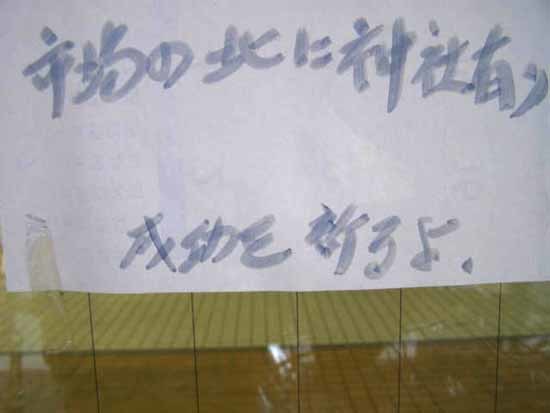 市場の北に神社有り
成功を祈るよ、